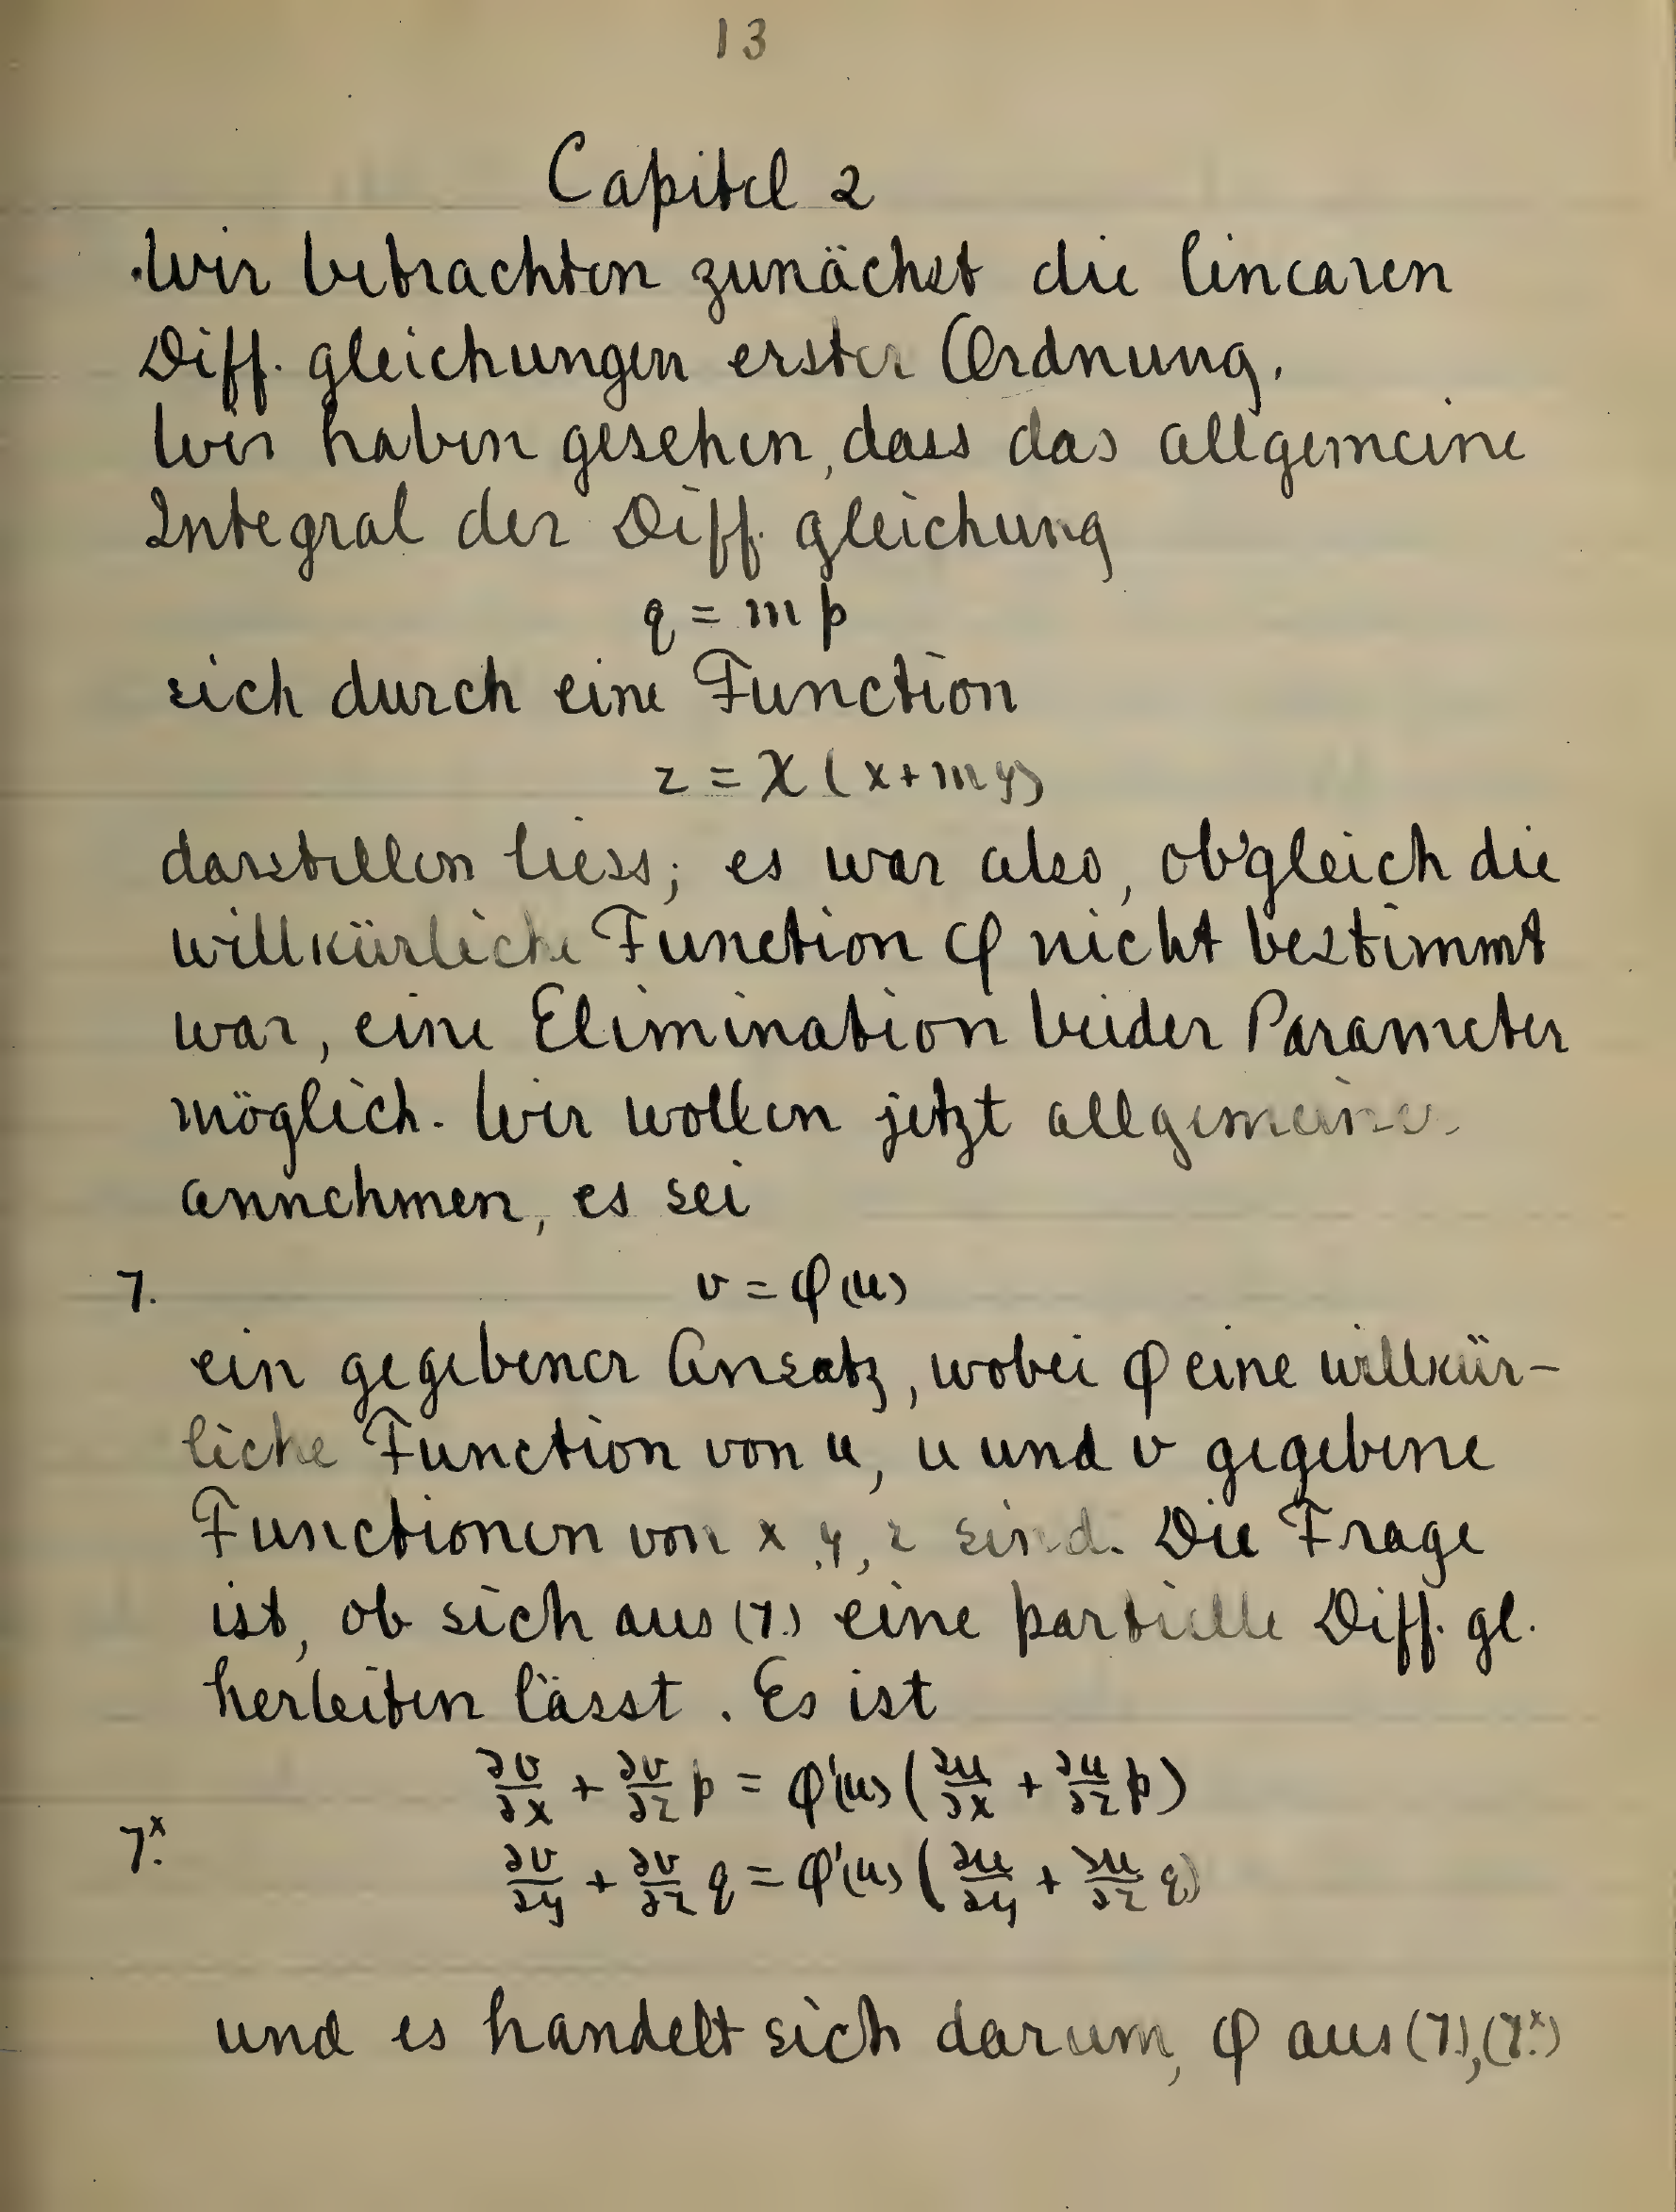 13
Capitel 2
Wir betrachten zunächst die linearen
Diff. gleichungen erster Ordnung.
Wir haben gesehen, dass das allgemeine
Integral der Diff. gleichung
q = m p
sich durch eine Function
z = χ (x + m y)
darstellen liess; es war also, obgleich die
willkürliche Function φ nicht bestimmt
war, eine Elimination beider Parameter
möglich. Wir wollen jetzt allgemeiner
annehmen, es sei
7. v = φ(u)
ein gegebener Ansatz, wobei φ eine willkür-
liche Function von u, u und v gegebene
Functionen von x, y, z sind. Die Frage
ist, ob sich aus (7.) eine partielle Diff. gl.
herleiten lässt. Es ist
∂v/∂x + ∂v/∂z p = φ'(u) (∂u/∂x + ∂u/∂z p)
7.ˣ ∂v/∂y + ∂v/∂z q = φ'(u) (∂u/∂y + ∂u/∂z q)
und es handelt sich darum, φ aus (7.), (7.ˣ)